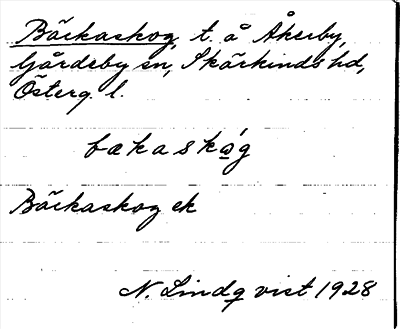 Bäckaskog, t. å Åkerby,
Gårdeby sn, Skärkinds hd,
Österg. l.
bækaskǿg
Bäckaskog ek
N. Lindqvist 1928